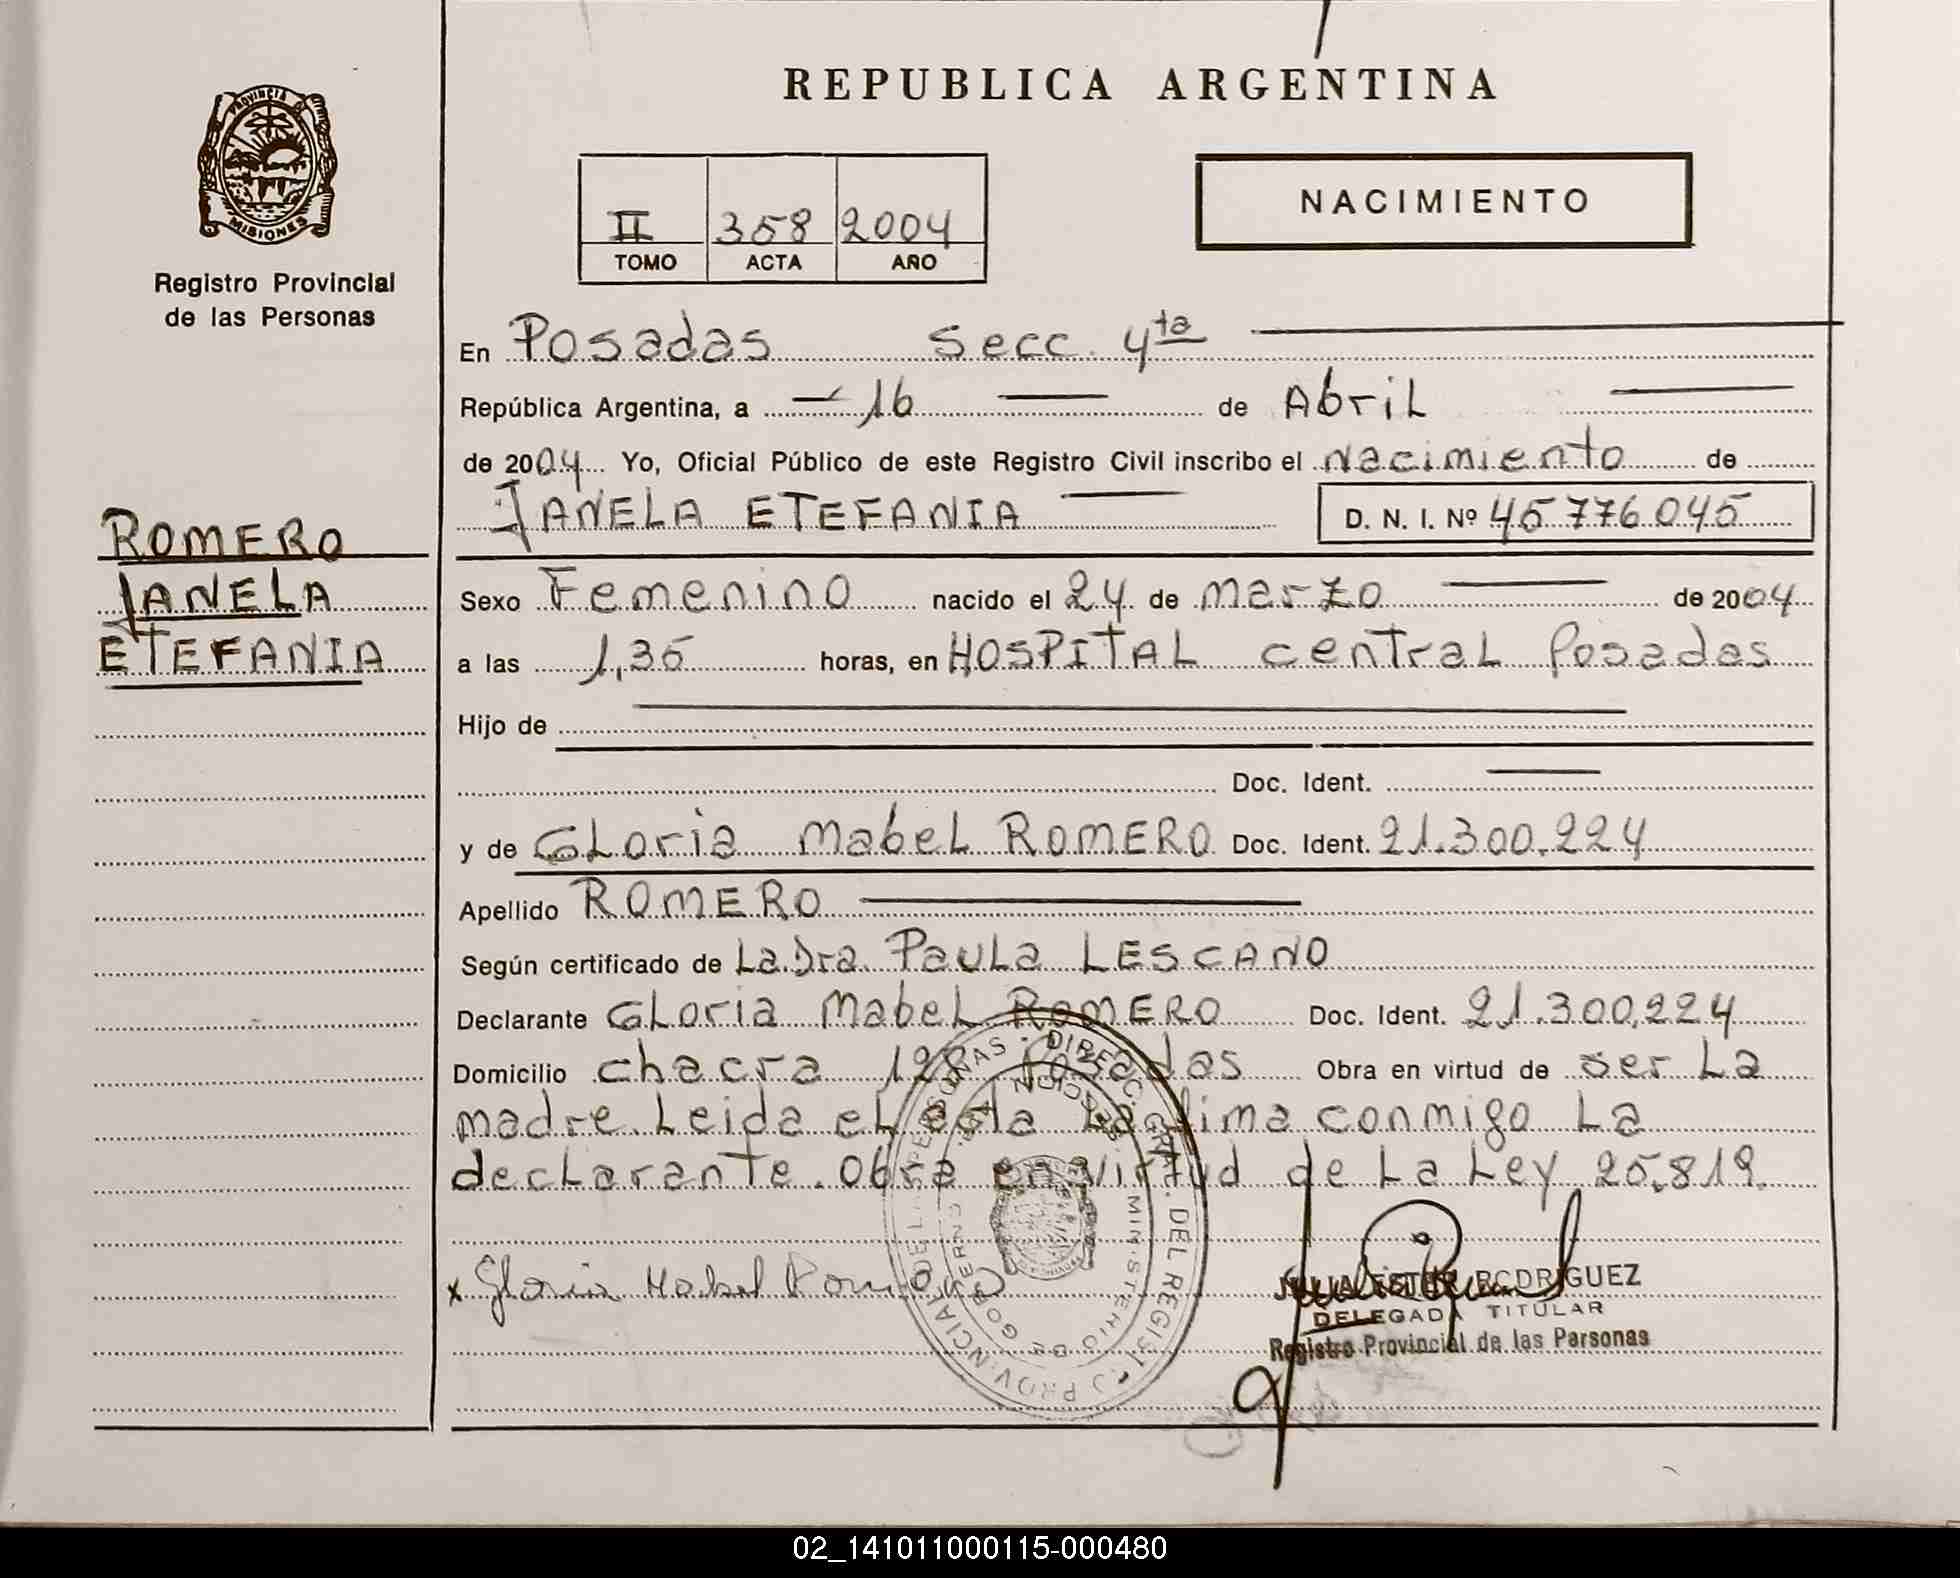 REPUBLICA ARGENTINA
PROVINCIA
MISIONES
Registro Provincial
de las Personas
II 358 2004
TOMO ACTA AÑO
NACIMIENTO
En Posadas Secc. 4ta
República Argentina, a 16 de Abril
de 2004 Yo, Oficial Público de este Registro Civil inscribo el Nacimiento de
JANELA ETEFANIA D. N. I. Nº 45 776.045
ROMERO
JANELA
ETEFANIA
Sexo Femenino nacido el 24 de Marzo de 2004
a las 1,35 horas, en HOSPITAL central Posadas
Hijo de
Doc. Ident.
y de GLoria MabeL ROMERO Doc. Ident. 21.300.224
Apellido ROMERO
Según certificado de La Dra. PauLa LESCANO
Declarante GLoria MabeL ROMERO Doc. Ident. 21.300.224
Domicilio chacra 128 Posadas Obra en virtud de ser La
madre. Leida eL acta La firma conmigo La
decLarante. Obra en virtud de La Ley 25.819.
x Gloria Mabel Romero
JULIA ESTER RODRIGUEZ
DELEGADA TITULAR
Registro Provincial de las Personas
DIREC. GRAL. DEL REGISTRO PROVINCIAL DE LAS PERSONAS
MINISTERIO DE GOBIERNO
02_141011000115-000480